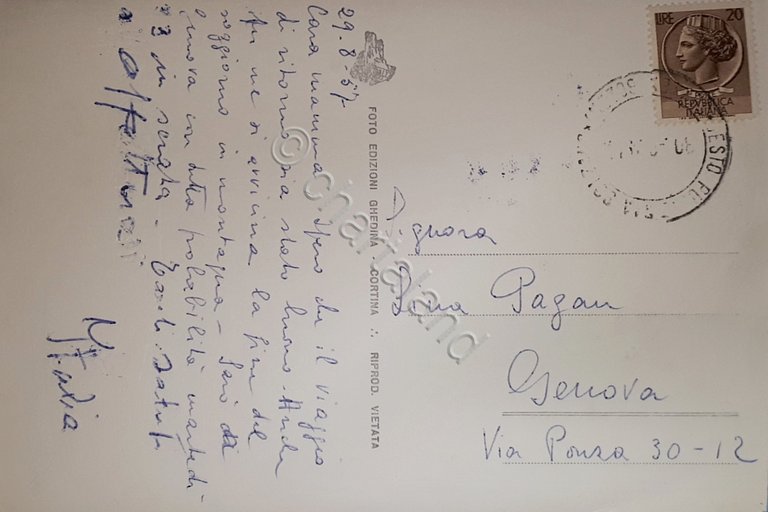 29.8.57
Cara mamma, spero che il viaggio
di ritorno sia stato buono. Anche
per me si avvicina la fine del
soggiorno in montagna - Sarò da
nuova con tutta probabilità martedì
3 in serata - Tanti saluti
affettuosi
FOTO EDIZIONI GHEDINA - CORTINA ∴ RIPROD. VIETATA
LIRE 20
REPVBBLICA
ITALIANA
Signora
Pagan
Genova
Via Ponza 30-12
© chartaland